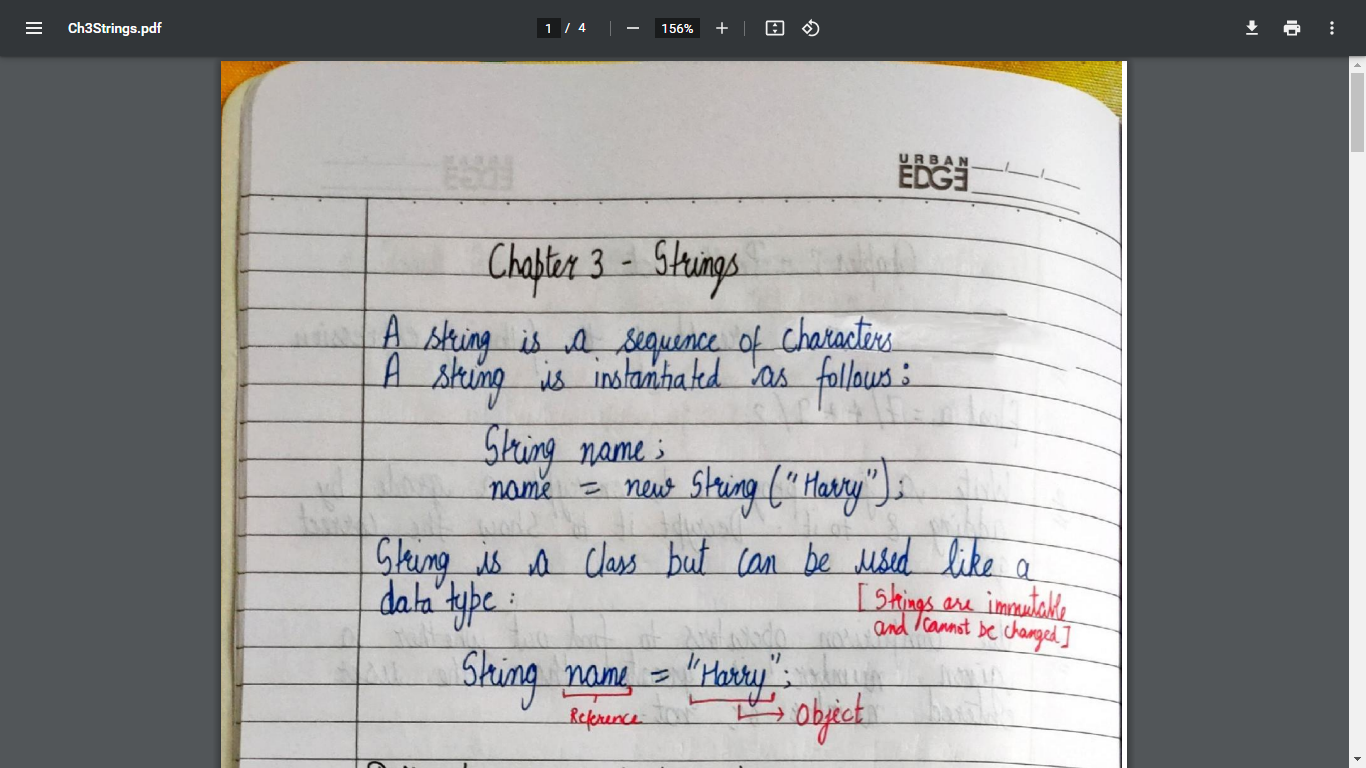 Ch3Strings.pdf
1 / 4
156%
URBAN
EDGE
Chapter 3 - Strings
A string is a sequence of characters
A string is instantiated as follows:
String name;
name = new String("Harry");
String is a class but can be used like a
data type:
[Strings are immutable
and cannot be changed]
String name = "Harry";
Reference
Object